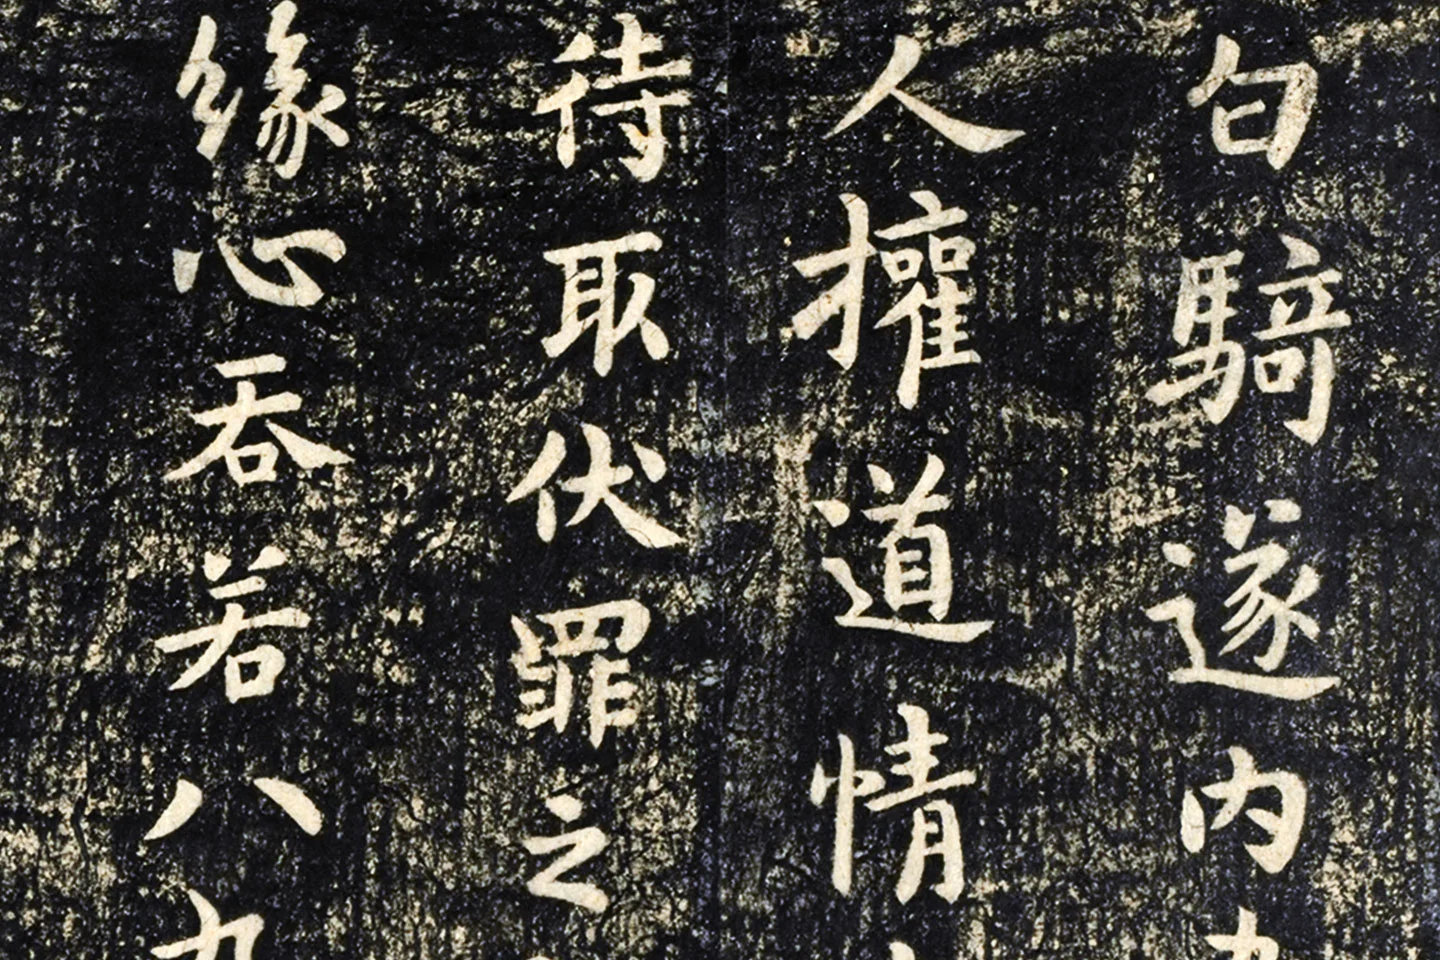 旬騎遂内
人擁道情
待取伏罪之
緣心吞若八九